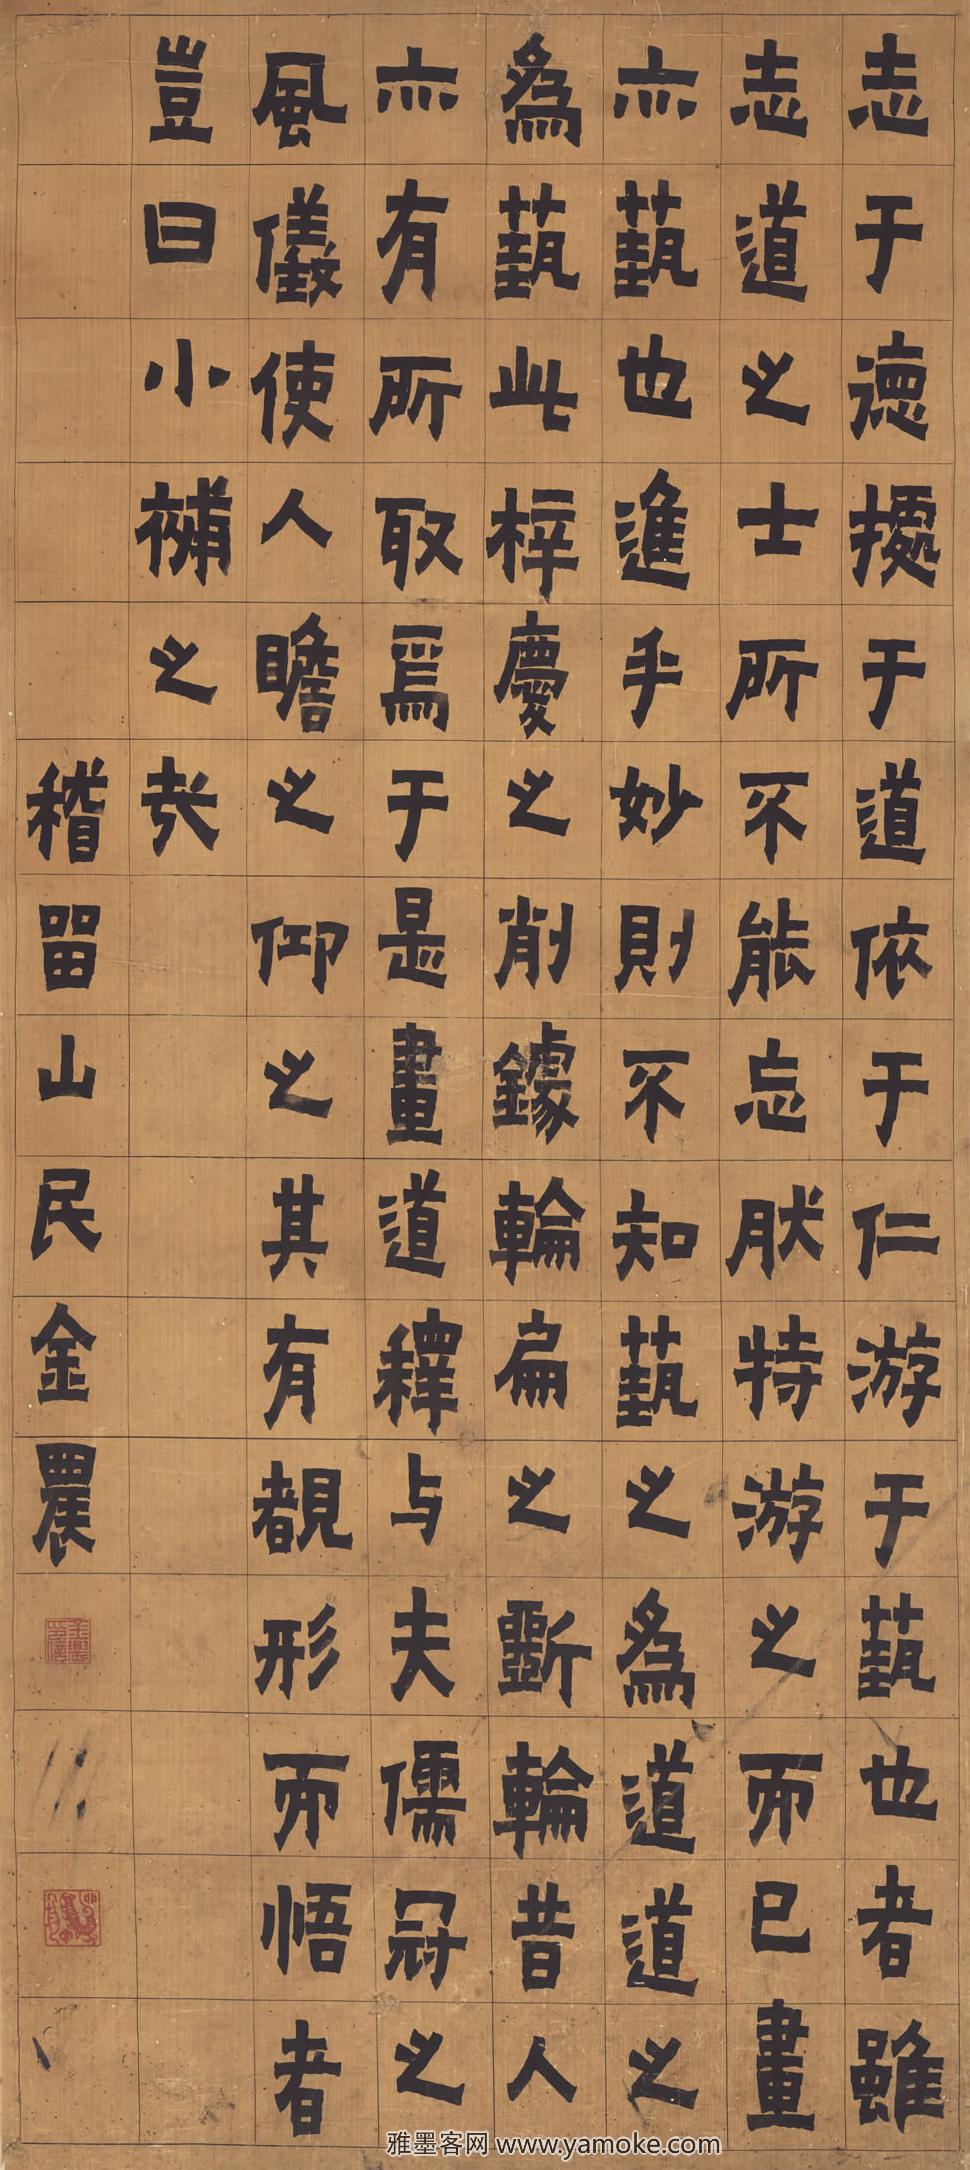 志于德㨿于道依于仁游于藝也者雖
志道之士所不能忘肰特游之而已畫
亦藝也進乎妙則不知藝之為道道之
為藝此梓慶之削鐻輪扁之斲輪昔人
亦有所取焉于是畫道釋与夫儒冠之
風儀使人瞻之仰之其有覩形而悟者
豈曰小補之哉
稽留山民金農
金農印信
雅墨客网 www.yamoke.com